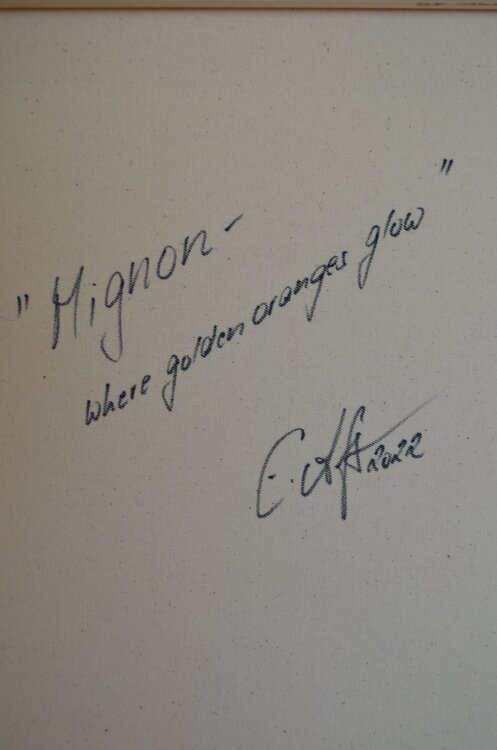 "Mignon-
where golden oranges glow"
2022